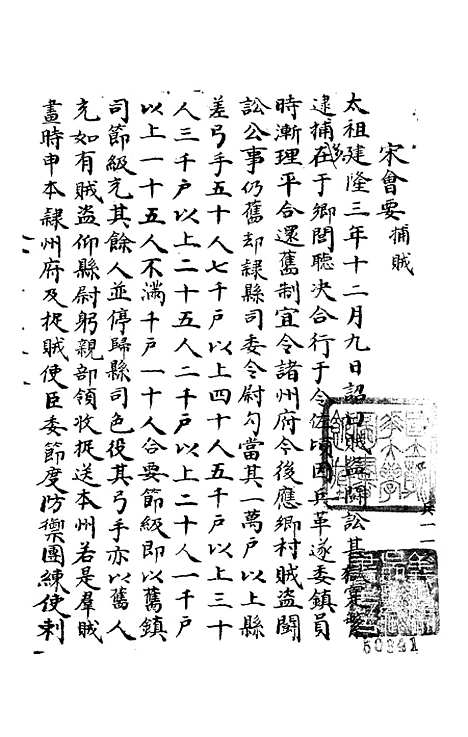 宋會要 捕賊
太祖建隆三年十二月九日詔曰賊盜鬭訟其獄寔繁
逮捕多在于鄉閭聽决合行于令佐頃因兵革遂委鎮員
時漸理平合還舊制宜令諸州府今後應鄉村賊盜鬭
訟公事仍舊却隸縣司委令尉勾當其一萬戶以上縣
差弓手五十人七千戶以上四十人五千戶以上三十
人三千戶以上二十五人二千戶以上二十人一千戶
以上一十五人不滿千戶一十人合要節級即以舊鎮
司節級充其餘人並停歸縣司色役其弓手亦以舊人
充如有賊盜仰縣尉躬親部領收捉送本州若是羣賊
畫時申本隸州府及捉賊使臣委節度防禦團練使刺
兵一一
50841